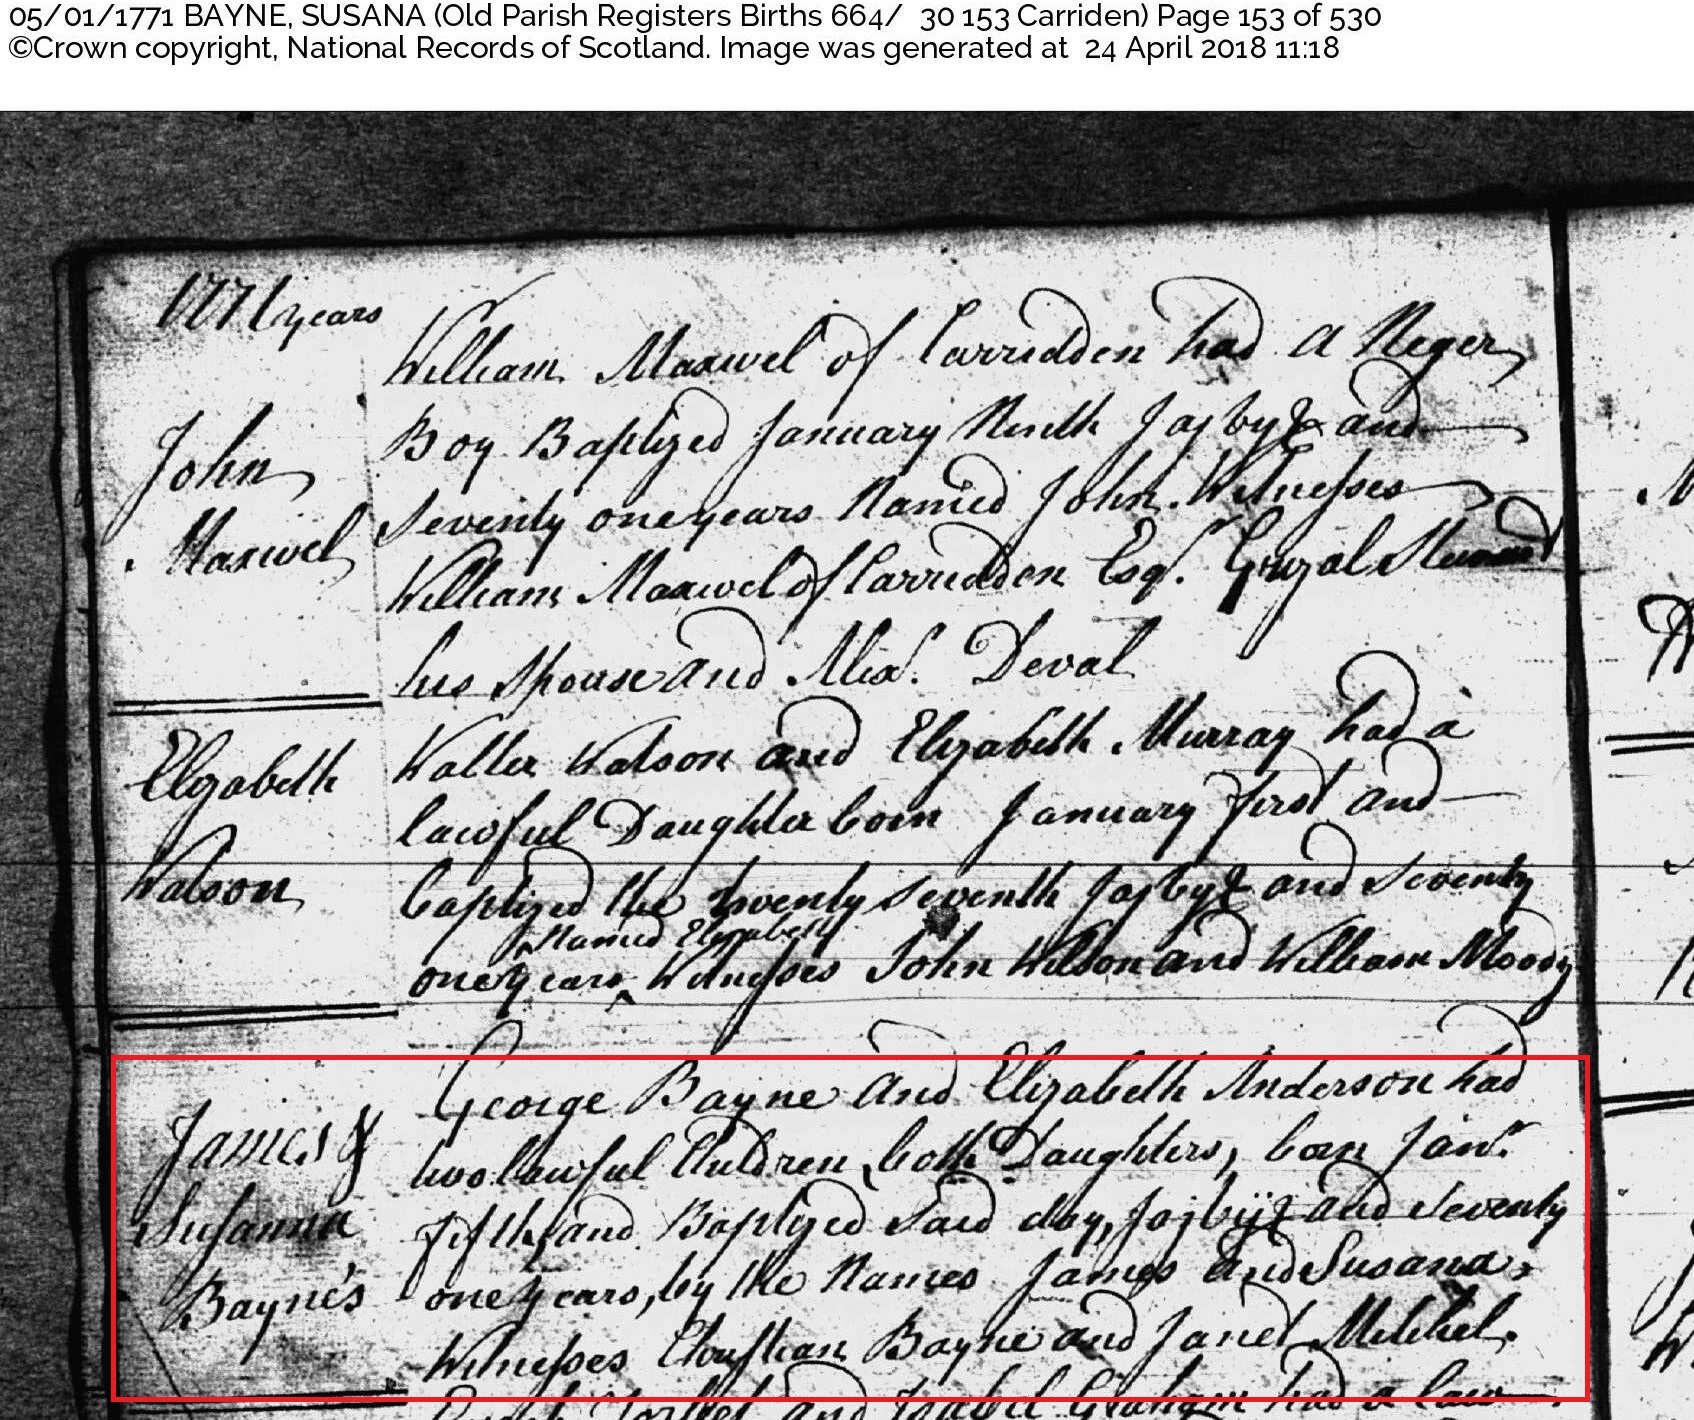 05/01/1771 BAYNE, SUSANA (Old Parish Registers Births 664/ 30 153 Carriden) Page 153 of 530
©Crown copyright, National Records of Scotland. Image was generated at 24 April 2018 11:18
1771 years
William Maxwel of Carridden had a Neger
Boy Baptized January Ninth Jajbyc and
John
Seventy one years Named John. Witnesses
Maxwel
William Maxwel of Carridden Esqr. Grizal
his Spouse and Alexr. Deval
Elizabeth
Walter Watson and Elizabeth Murray had a
lawful Daughter born January first and
Watson
Baptized the twenty seventh Jajbyc and Seventy
Named Elizabeth
one years Witnesses John Wilson and William Moody
George Bayne and Elizabeth Anderson had
James &
two lawful Children, both Daughters, born Janr.
Susanna
fifth, and Baptized said day, Jajbyc and Seventy
Bayne's
one years, by the Names James and Susana,
Witnesses Christian Bayne and Janet Mitchel.
and Isabel Graham had a law